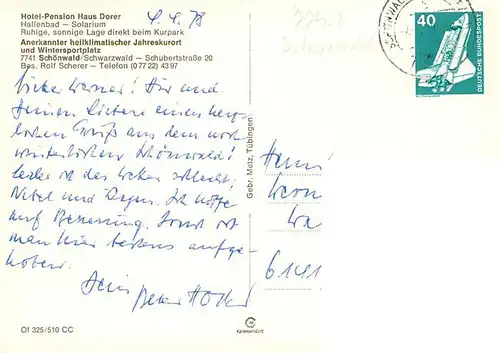 Hotel-Pension Haus Dorer
Hallenbad – Solarium
Ruhige, sonnige Lage direkt beim Kurpark
Anerkannter heilklimatischer Jahreskurort
und Wintersportplatz
7741 Schönwald/Schwarzwald – Schubertstraße 20
Bes. Rolf Scherer – Telefon (0 77 22) 43 97
4.4.78
Lieber Werner! Dir und
Deinen Lieben einen herz-
lichen Gruß aus dem noch
winterlichen Schönwald!
Leider ist das Wetter schlecht.
Nebel und Regen. Ich hoffe
auf Besserung. Sonst ist
man hier bestens aufge-
hoben.
Dein Peter
Gebr. Metz, Tübingen
Of 325/510 CC
40
DEUTSCHE BUNDESPOST
Herrn
6141